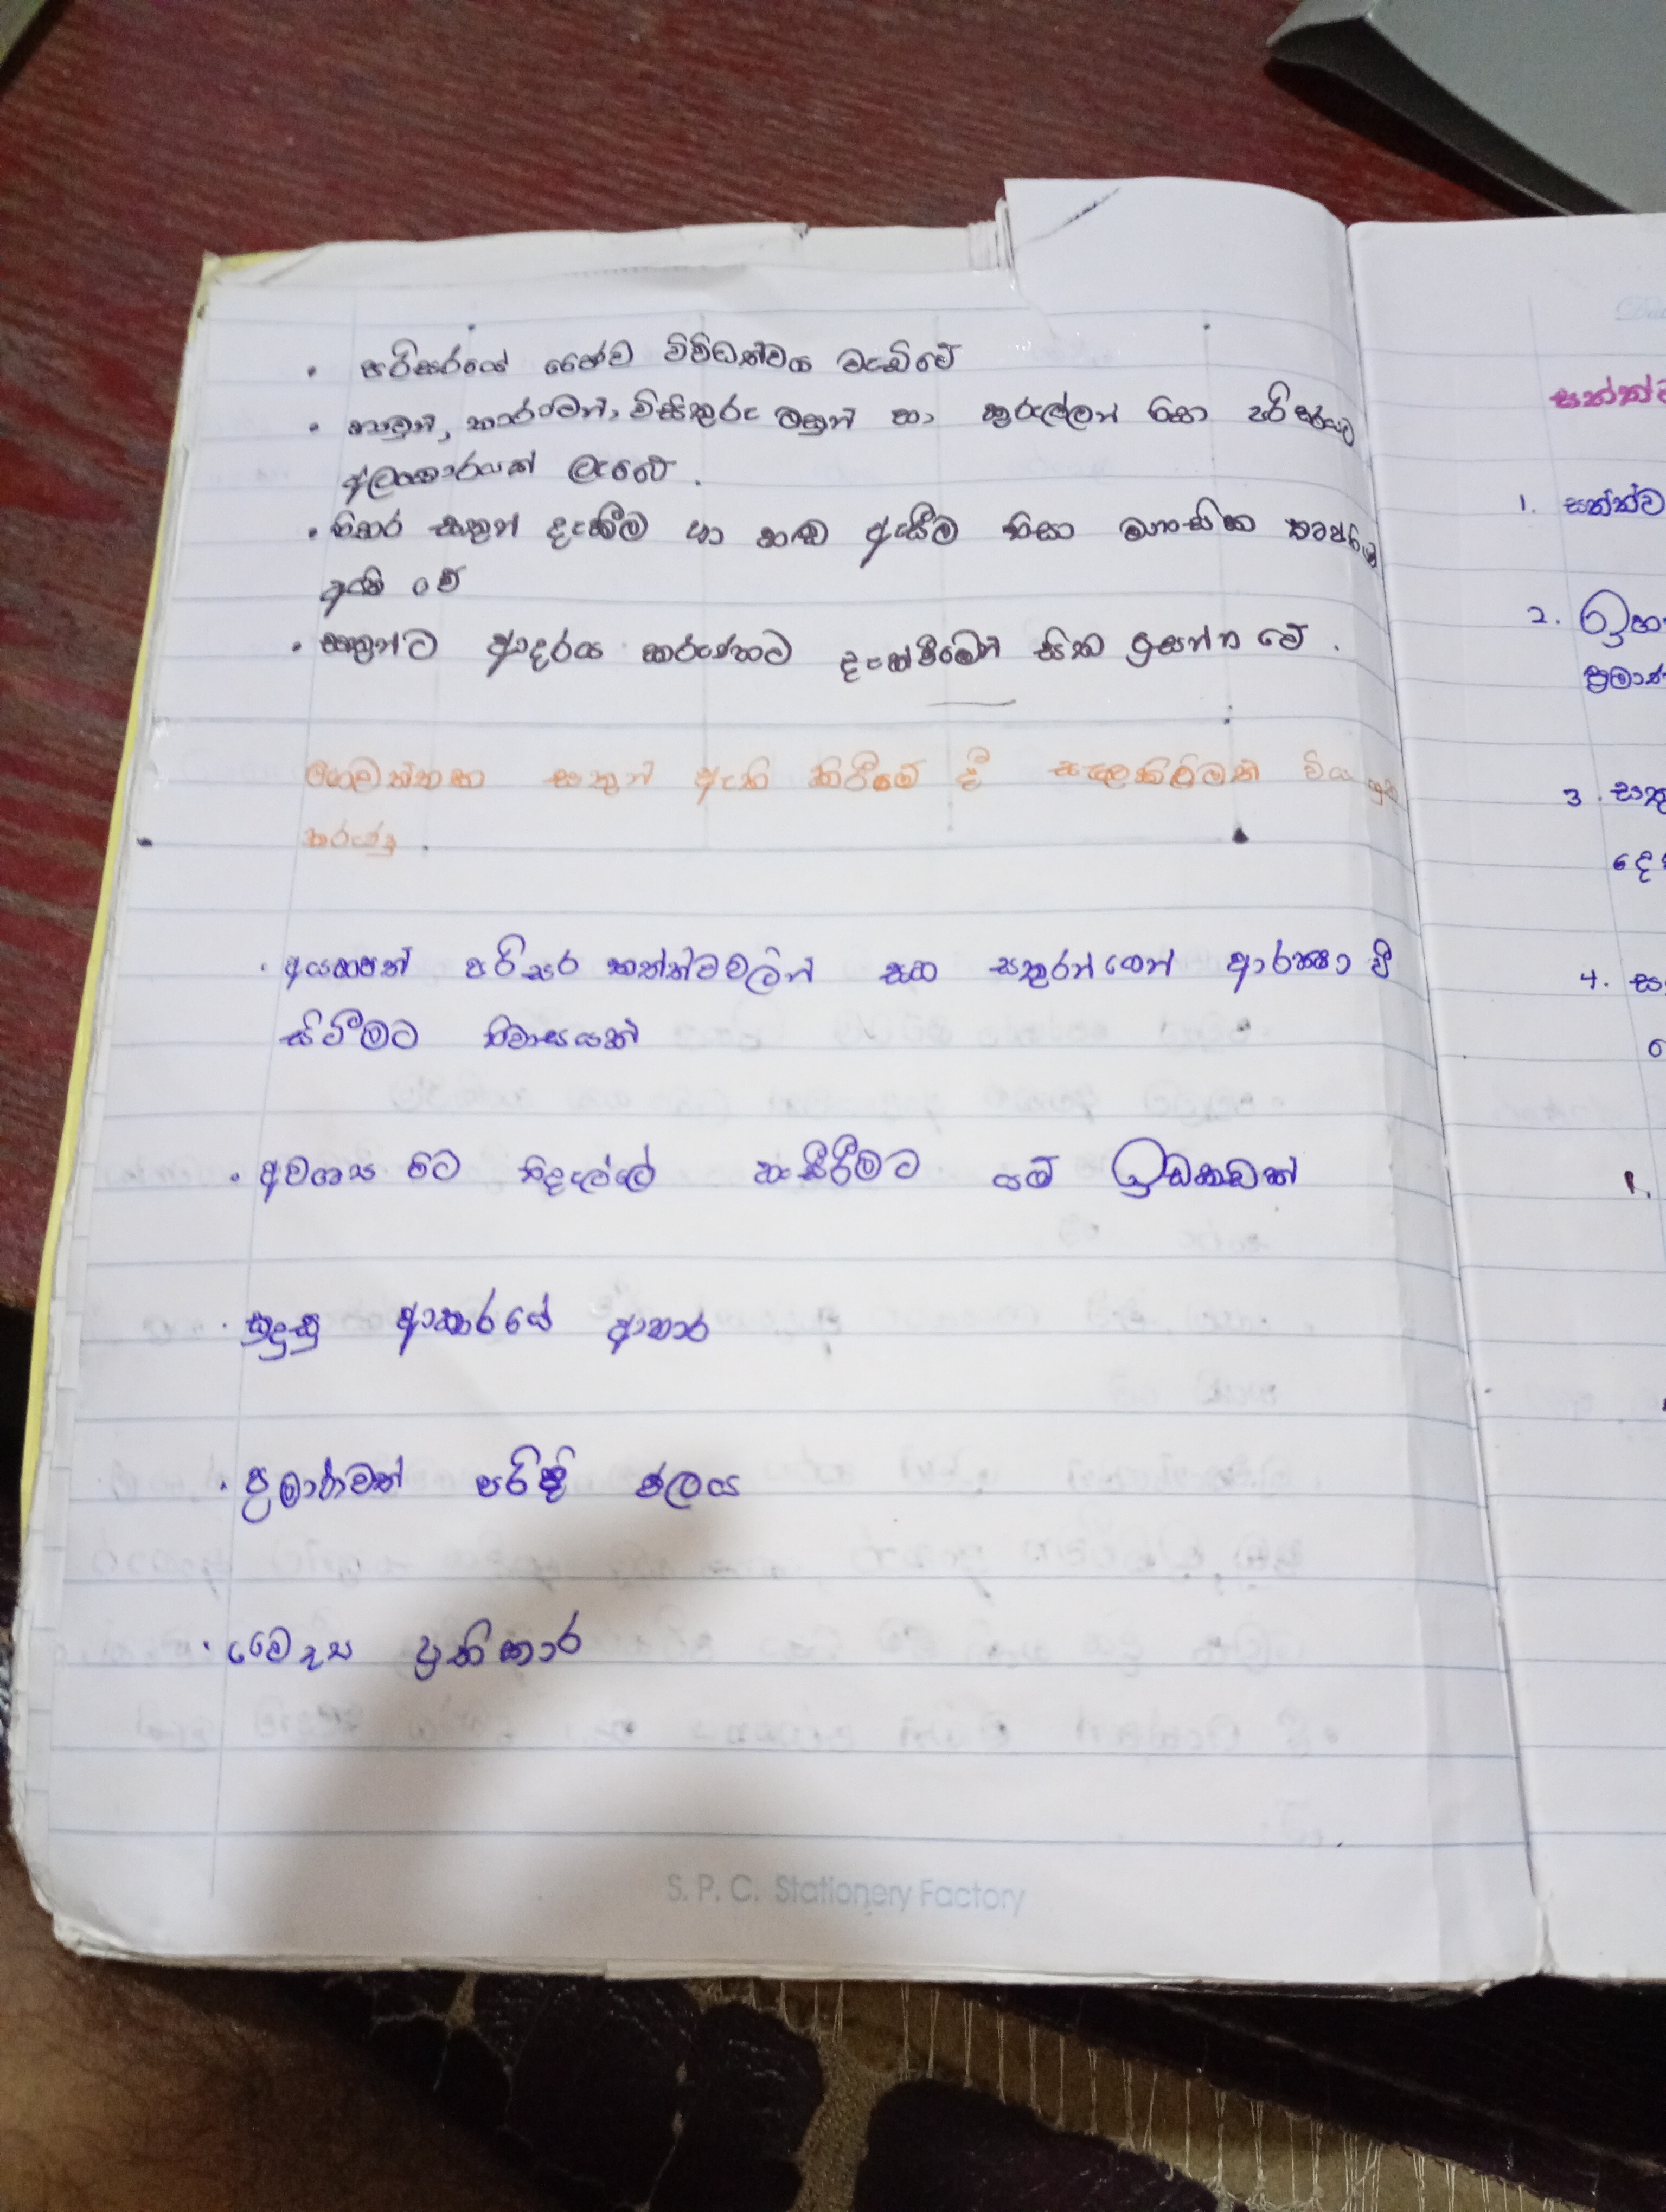 • පරිසරයේ ජෛව විවිධත්වය වැඩිවේ
• හාවුන්, කාර්මින්, විසිතුරු මසුන් හා කුරුල්ලන් නිසා පරිසරයට
අලංකාරයක් ලැබේ.
• මෙහර සතුන් දැකීම හා හඬ ඇසීම නිසා මානසික තෘප්තිය
ඇති වේ
• සතුන්ට ආදරය කරුණාව දැක්වීමෙන් සිත ප්‍රසන්න වේ.
ගෙවත්තක සතුන් ඇති කිරීමේ දී සැලකිලිමත් විය යුතු
කරුණු.
• අයහපත් පරිසර තත්ත්වවලින් සහ සතුරන්ගෙන් ආරක්ෂා වී
සිටීමට නිවාසයක්
• අවශ්‍ය විට නිදැල්ලේ හැසිරීමට යම් ඉඩකඩක්
• සුදුසු ආකාරයේ ආහාර
• ප්‍රමාණවත් පරිදි ජලය
• වෛද්‍ය ප්‍රතිකාර
S. P. C. Stationery Factory
1. සත්ත්ව
2. ඉහ
ප්‍රමාණ
3. සතු
දෙ
4. ස